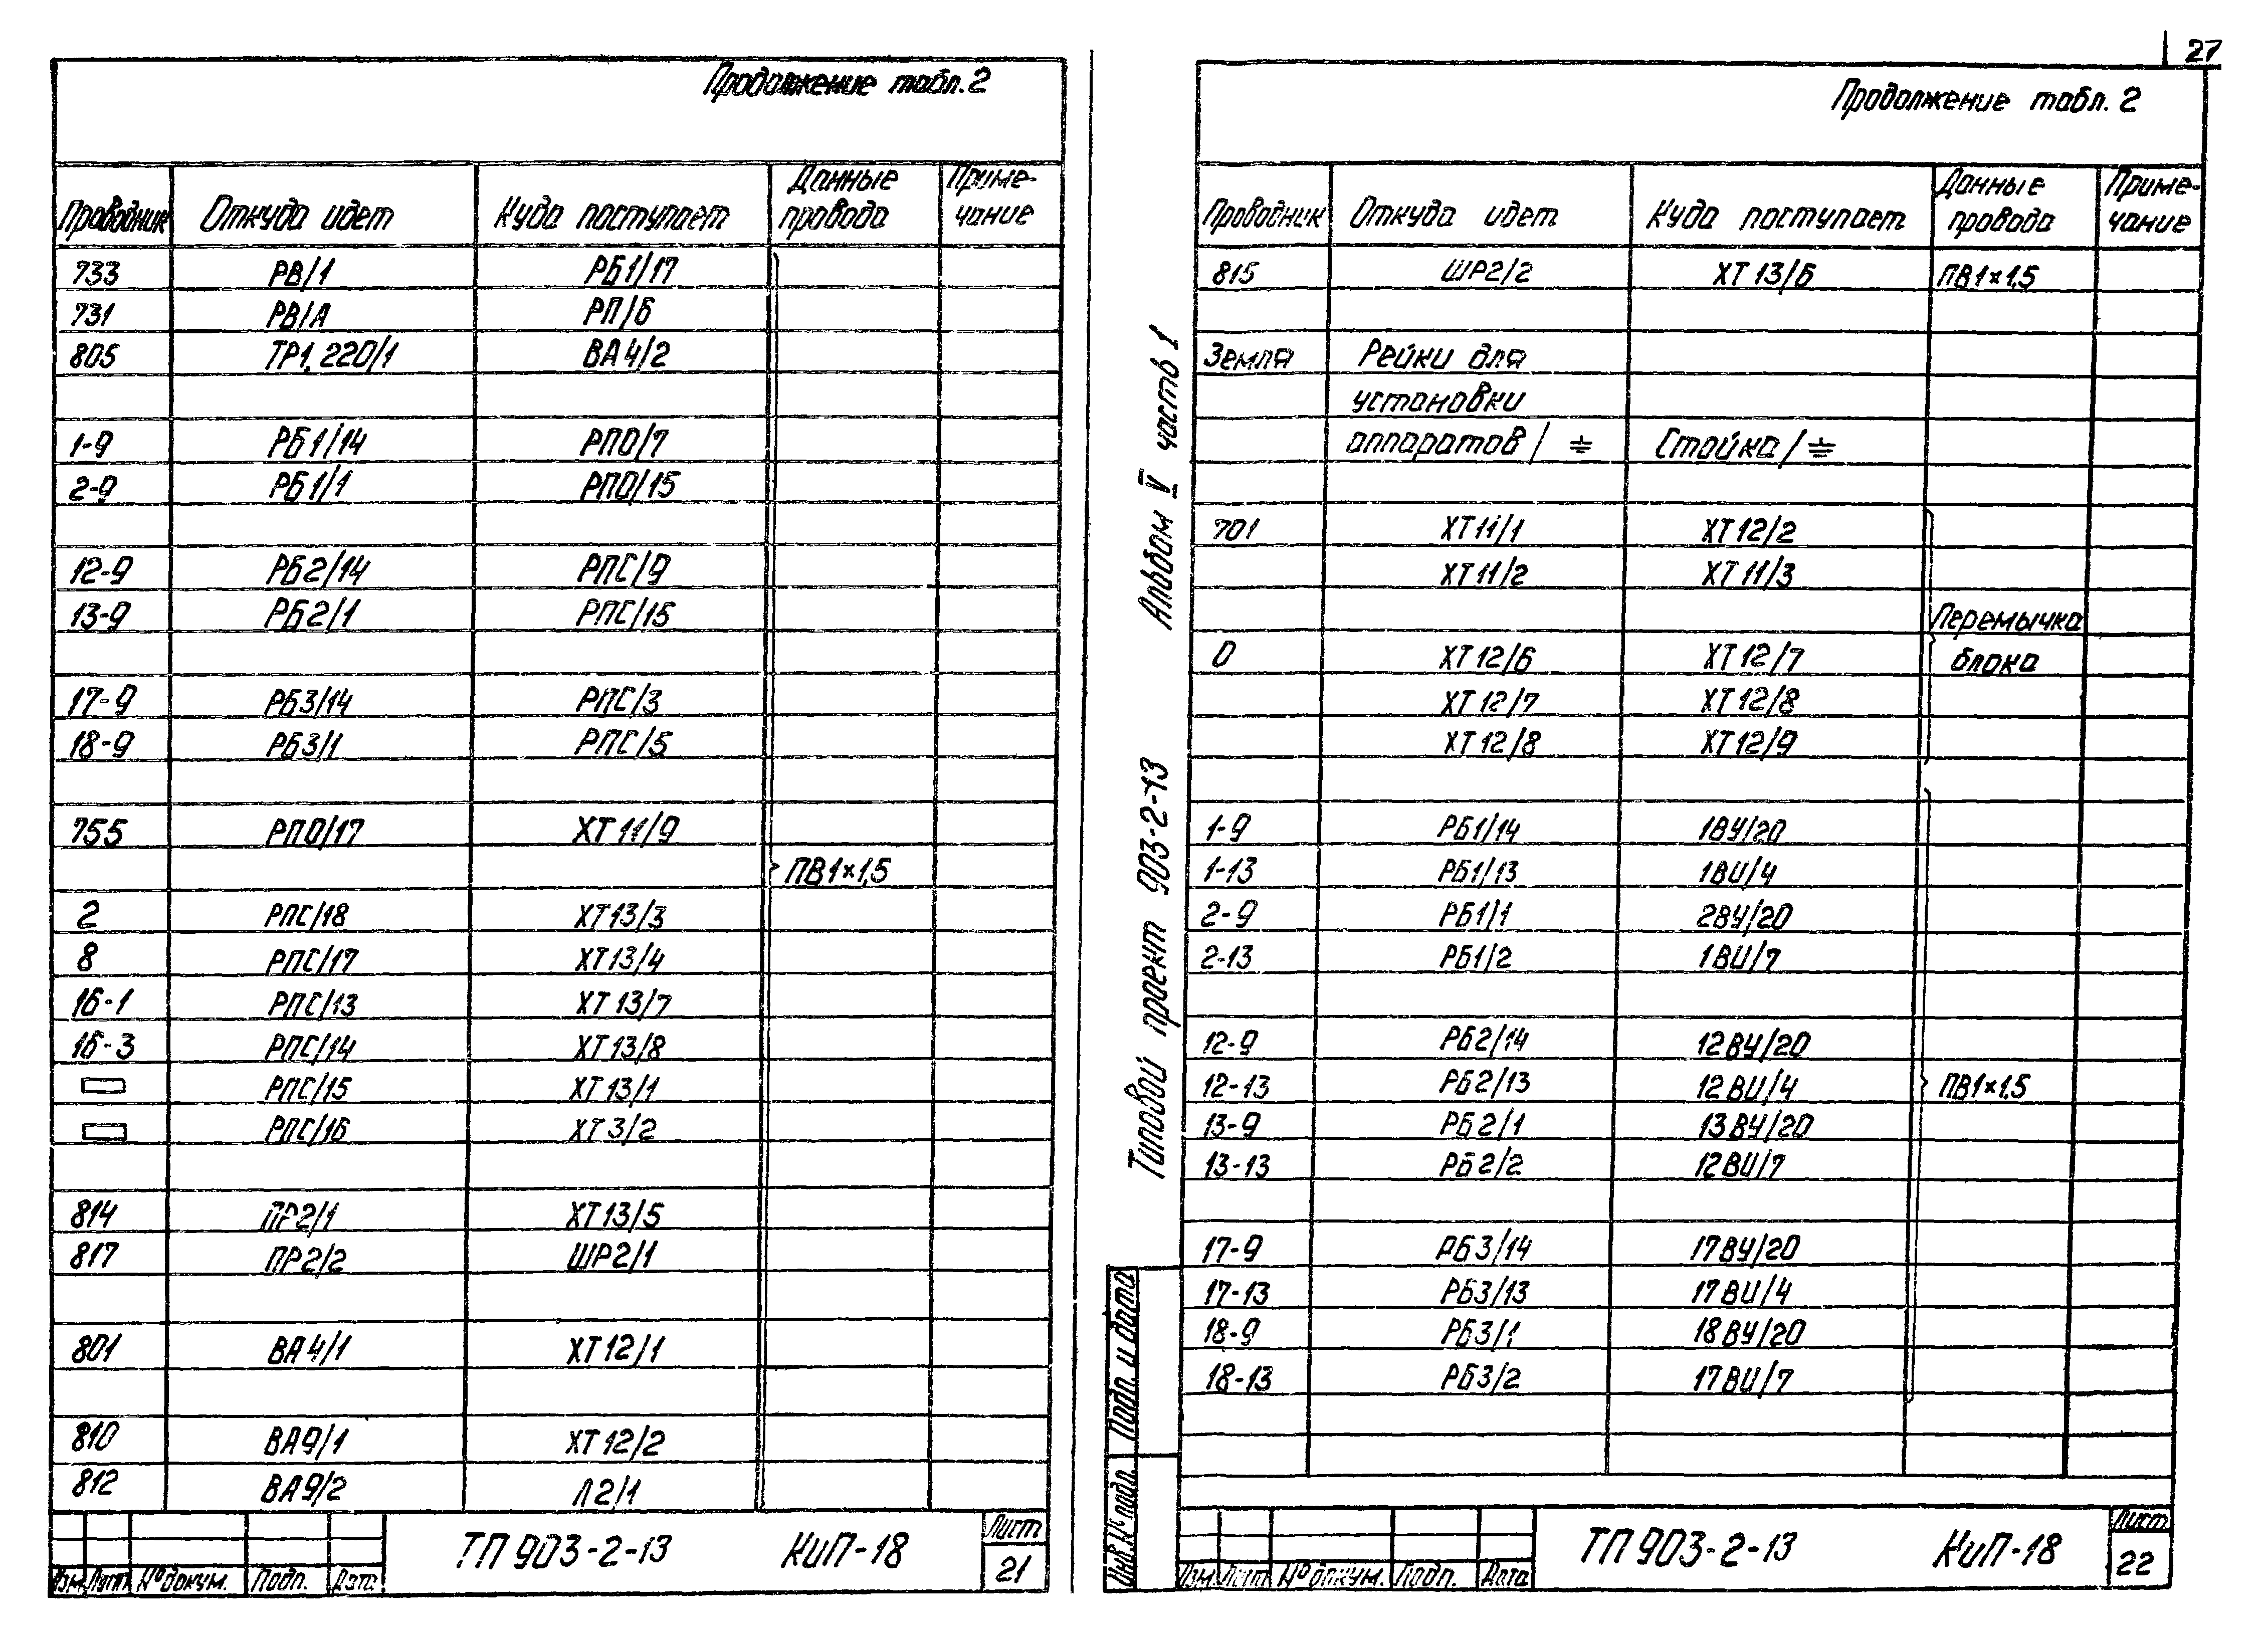 27
Продолжение табл. 2
Проводник Откуда идет Куда поступает Данные провода Примечание
733 РВ/1 РБ1/17
731 РВ/А РП/6
805 ТР1, 220/1 ВА4/2
1-9 РБ1/14 РП0/7
2-9 РБ1/1 РП0/15
12-9 РБ2/14 РПС/9
13-9 РБ2/1 РПС/15
17-9 РБ3/14 РПС/3
18-9 РБ3/1 РПС/5
755 РП0/17 ХТ11/9
ПВ1×1,5
2 РПС/18 ХТ13/3
8 РПС/17 ХТ13/4
16-1 РПС/13 ХТ13/7
16-3 РПС/14 ХТ13/8
РПС/15 ХТ13/1
РПС/16 ХТ3/2
814 ПР2/1 ХТ13/5
817 ПР2/2 ШР2/1
801 ВА4/1 ХТ12/1
810 ВА9/1 ХТ12/2
812 ВА9/2 Л2/1
Изм. Лист № докум. Подп. Дата
ТП 903-2-13 КиП-18 Лист 21
Альбом V часть 1
Типовой проект 903-2-13
Подп. и дата
Инв. № подл.
Продолжение табл. 2
Проводник Откуда идет Куда поступает Данные провода Примечание
815 ШР2/2 ХТ13/6 ПВ1×1,5
Земля Рейки для
установки
аппаратов/⏚ Стойка/⏚
701 ХТ11/1 ХТ12/2
ХТ11/2 ХТ11/3
Перемычка
0 ХТ12/6 ХТ12/7 блока
ХТ12/7 ХТ12/8
ХТ12/8 ХТ12/9
1-9 РБ1/14 1ВУ/20
1-13 РБ1/13 1ВИ/4
2-9 РБ1/1 2ВУ/20
2-13 РБ1/2 1ВИ/7
12-9 РБ2/14 12ВУ/20
12-13 РБ2/13 12ВИ/4 ПВ1×1,5
13-9 РБ2/1 13ВУ/20
13-13 РБ2/2 12ВИ/7
17-9 РБ3/14 17ВУ/20
17-13 РБ3/13 17ВИ/4
18-9 РБ3/1 18ВУ/20
18-13 РБ3/2 17ВИ/7
Изм. Лист № докум. Подп. Дата
ТП 903-2-13 КиП-18 Лист 22